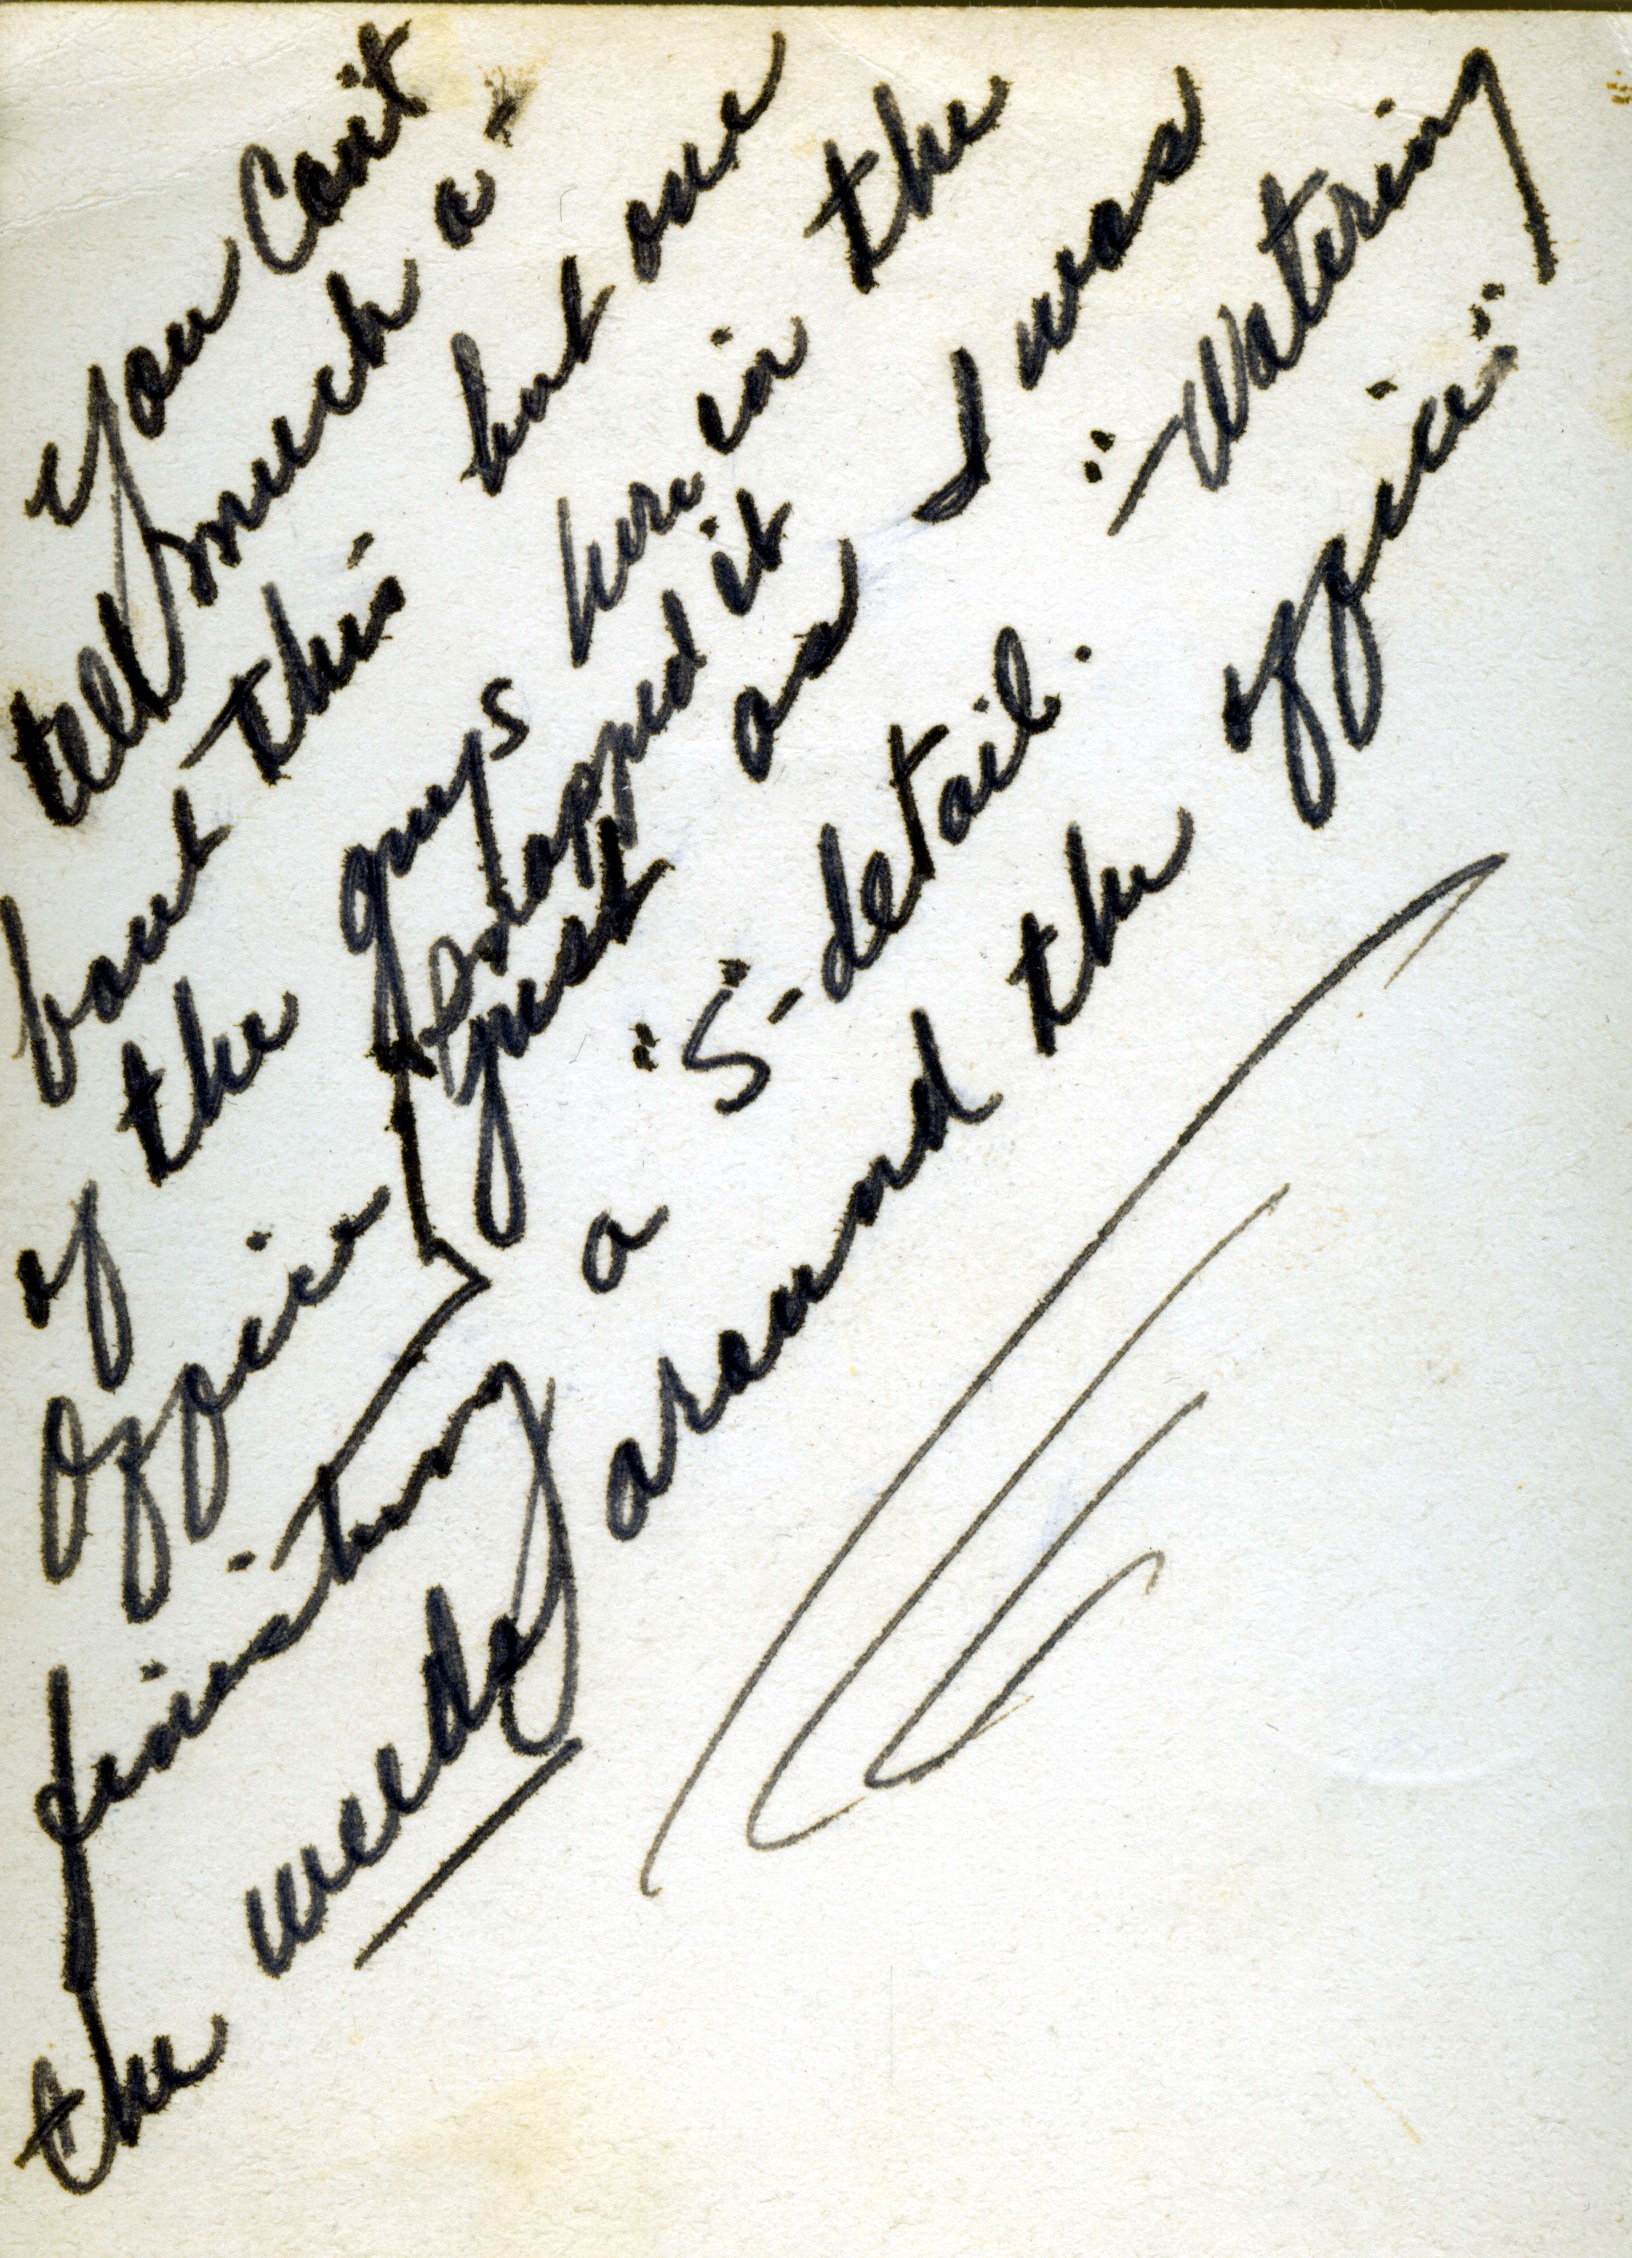 You Can't
tell much a-
bout this but one
of the guys here in the
Office snapped it
just as I was
finishing a "S-detail. "Watering
the weeds around the office."